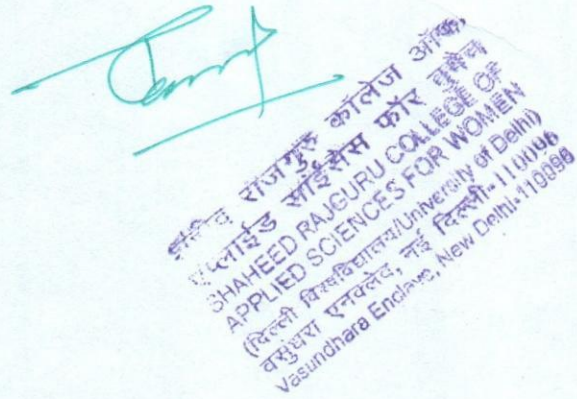 शहीद राजगुरु कॉलेज ऑफ
एप्लाईड साईंसेस फॉर वूमैन
SHAHEED RAJGURU COLLEGE OF
APPLIED SCIENCES FOR WOMEN
(दिल्ली विश्वविद्यालय/University of Delhi)
वसुंधरा एनक्लेव, नई दिल्ली-110096
Vasundhara Enclave, New Delhi-110096